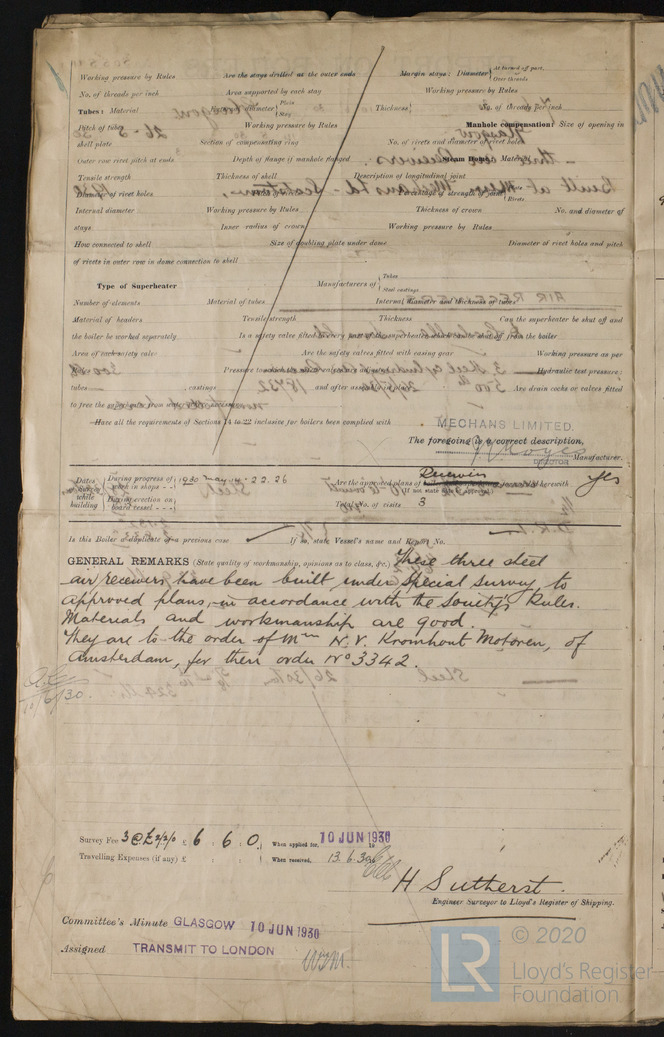 Working pressure by Rules Are the stays drilled at the outer ends Margin stays: Diameter { At turned off part, Over threads
No. of threads per inch Area supported by each stay Working pressure by Rules
Tubes: Material External diameter { Plain Stay Thickness { No. of threads per inch
Pitch of tubes Working pressure by Rules Manhole compensation: Size of opening in
shell plate Section of compensating ring No. of rivets and diameter of rivet holes
Outer row rivet pitch at ends Depth of flange if manhole flanged Steam Dome: Material
Tensile strength Thickness of shell Description of longitudinal joint
Diameter of rivet holes Percentage of strength of joint { Plate Rivets
Internal diameter Working pressure by Rules Thickness of crown No. and diameter of
stays Inner radius of crown Working pressure by Rules
How connected to shell Size of doubling plate under dome Diameter of rivet holes and pitch
of rivets in outer row in dome connection to shell
Type of Superheater Manufacturers of { Tubes Steel castings
Number of elements Material of tubes Internal diameter and thickness of tubes
Material of headers Tensile strength Thickness Can the superheater be shut off and
the boiler be worked separately Is a safety valve fitted to every part of the superheater which can be shut off from the boiler
Area of each safety valve Are the safety valves fitted with easing gear Working pressure as per
Rules Hydraulic test pressure:
tubes castings and after assembly Are drain cocks or valves fitted
to free the superheater from water where necessary
Have all the requirements of Sections 14 to 22 inclusive for boilers been complied with
MECHANS LIMITED.
The foregoing is a correct description,
Manufacturer.
Dates of Survey while building { During progress of work in shops - - 1930 May 14. 22. 26 Are the approved plans of Receiver forwarded herewith Yes
During erection on board vessel - - - Total No. of visits 3
Is this Boiler a duplicate of a previous case If so, state Vessel's name and Report No.
GENERAL REMARKS (State quality of workmanship, opinions as to class, &c.) These three steel
air receivers have been built under Special Survey to
approved plans, in accordance with the Society's Rules.
Materials and workmanship are good.
They are to the order of Mssrs N. V. Kromhout Motoren, of
Amsterdam, for their order No 3342.
10/6/30.
Survey Fee 3 @ £2/2/0 £ 6 : 6 : 0. When applied for, 10 JUN 1930
Travelling Expenses (if any) £ : : When received, 13.6.30
H Sutherst.
Engineer Surveyor to Lloyd's Register of Shipping.
Committee's Minute GLASGOW 10 JUN 1930
Assigned TRANSMIT TO LONDON
LR © 2020
Lloyd's Register
Foundation